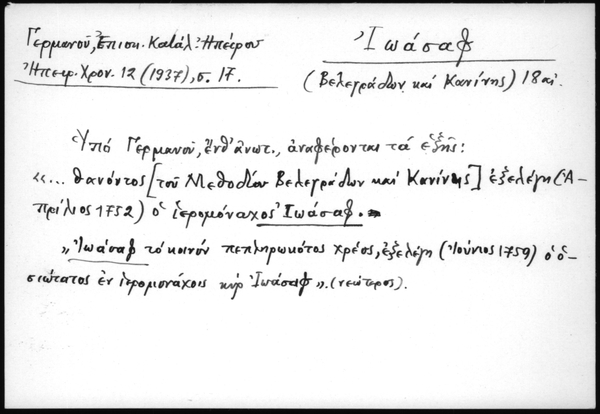 Γερμανοῦ, Ἐπισκ. Κατάλ. Ἠπείρου
Ἠπειρ. Χρον. 12 (1937), σ. 17.
Ἰωάσαφ
(Βελεγράδων καὶ Κανίνης) 18 αἰ.
Ὑπό Γερμανοῦ, ἔνθ' ἀνωτ., ἀναφέρονται τά ἑξῆς:
«... θανόντος [τοῦ Μεθοδίου Βελεγράδων καί Κανίνης] ἐξελέγη (Ἀ-
πρίλιος 1752) ὁ ἱερομόναχος Ἰωάσαφ.
„Ἰωάσαφ τό κοινόν πεπληρωκότος χρέος, ἐξελέγη (Ἰούνιος 1759) ὁ ὁ-
σιώτατος ἐν ἱερομονάχοις κύρ Ἰωάσαφ». (νεώτερος).